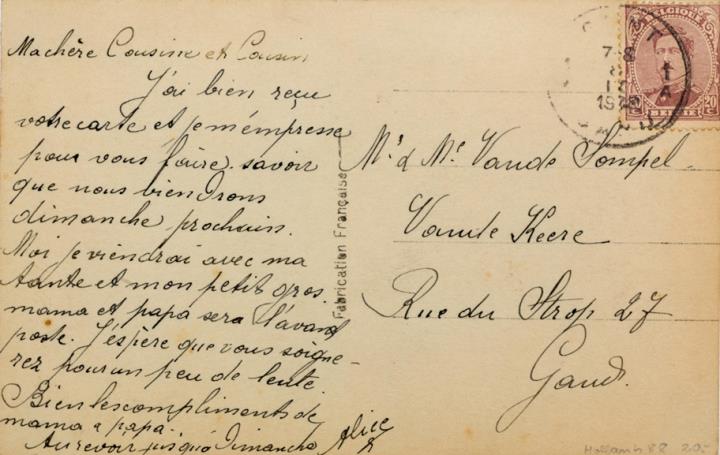 Ma chère Cousine et Cousin
J'ai bien reçu
votre carte et je m'empresse
pour vous faire savoir
que nous viendrons
dimanche prochain.
Moi je viendrai avec ma
tante et mon petit gros.
mama et papa sera l'avant
poste. J'éspère que vous soigne-
rez pour un peu de
Bien les compliments de
mama & papa.
Au revoir jusqu'a Dimanche Alice
Fabrication Française
Mr & Me Vande Sompel -
Vande Keere
Rue du Strop 27
Gand.
BELGIQUE
20c 20c
BELGIE
GENT
7-8
8
12
1A
GAND
Hollands 88 20.-